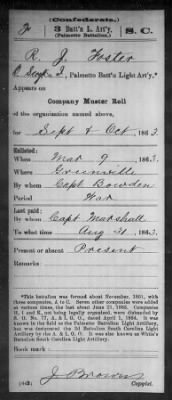 (Confederate.)
F 3 Batt'n L. Art'y. S. C.
(Palmetto Battalion.)
R. J. Foster
Co. I, Palmetto Batt'n Light Art'y.*
Appears on
Company Muster Roll
of the organization named above,
for Sept & Oct, 1863.
Enlisted:
When Mar 9, 1863.
Where Greenville
By whom Capt Bowden
Period War
Last paid:
By whom Capt Marshall
To what time Aug 31, 1863.
Present or absent Present
Remarks:
*This battalion was formed about November, 1861, with
three companies, A to C. Seven other companies were added
at various times, the last one about
H, I and K, not having been legally organized, were disbanded by
S. O. No. 77, A. & I. G. O., dated April 1, 1864. It was
known in the field as the Palmetto Battalion Light Artillery,
but was designated the 3d Battalion South Carolina Light
Artillery by the A. & I. G. O. It was also known as White's
Battalion South Carolina Light Artillery.
Book mark:
(642) J Brown
Copyist.